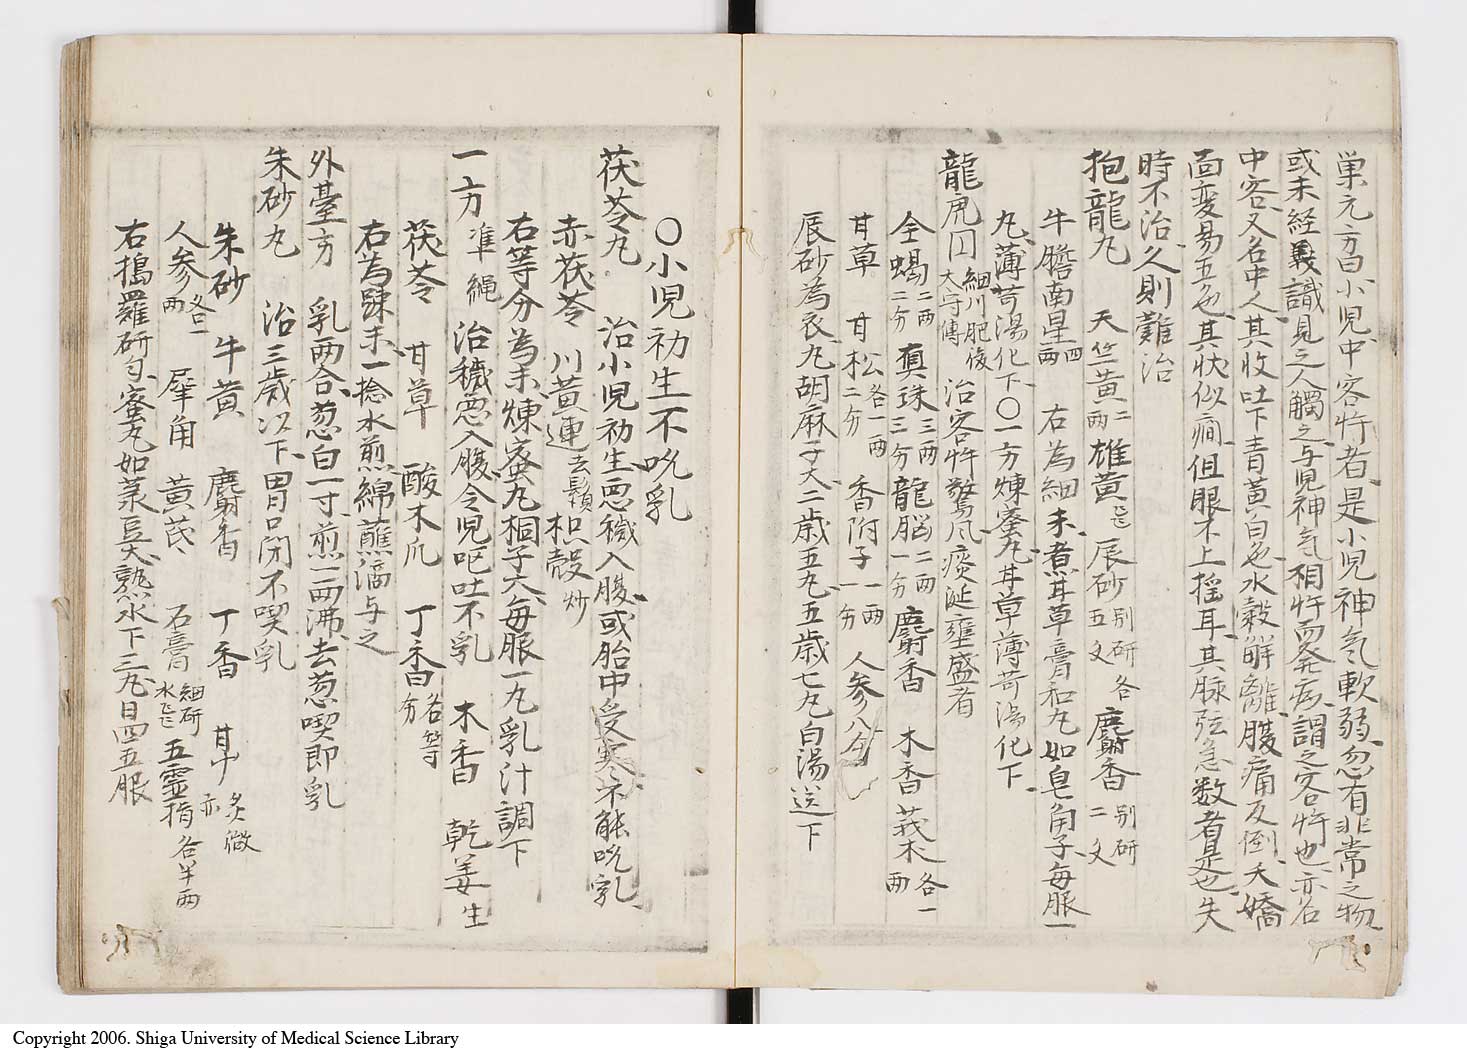 巣元方曰小児中客忤者是小児神気軟弱忽有非常之物
或未経識見之人觸之与児神気相忤而発病謂之客忤也亦名
中客又名中人其状吐下青黄白色水穀解離腹痛反倒夭矯
面変易五色其状似癇但眼不上揺耳其脉弦急数者是也失
時不治久則難治
抱龍丸 天竺黄二両 雄黄一匁 辰砂別研五文 各麝香別研二文
牛膽南星四両 右為細末煮甘草膏和丸如皂角子毎服一
丸薄荷湯化下〇一方煉蜜丸甘草薄荷湯化下
龍虎円 細川肥後太守傳 治客忤驚風痰涎壅盛者
全蝎二両二分 真珠三両三分 龍脳二両一分 麝香 木香 莪朮各一両
甘草 甘松各一両二分 香附子一両一分 人参八分
辰砂為衣丸胡麻子大二歳五丸五歳七丸白湯送下
〇小児初生不吮乳
茯苓丸 治小児初生悪穢入腹或胎中受寒不能吮乳
赤茯苓 川黄連去鬚 枳殻炒
右等分為末煉蜜丸桐子大毎服一丸乳汁調下
一方 準縄 治穢悪入腹令児呕吐不乳 木香 乾姜生
茯苓 甘草 酸木瓜 丁香各等分
右為䟽末一捻水煎綿蘸滴与之
外臺方 乳両合葱白一寸煎一両沸去葱喫即乳
朱砂丸 治三歳以下胃口閉不喫乳
朱砂 牛黄 麝香 丁香 甘草炙微赤
人参各一両 犀角 黄芪 石膏細研水飛 五霊脂各半両
右搗羅研匀蜜丸如菉豆大熟水下三丸日四五服
Copyright 2006. Shiga University of Medical Science Library